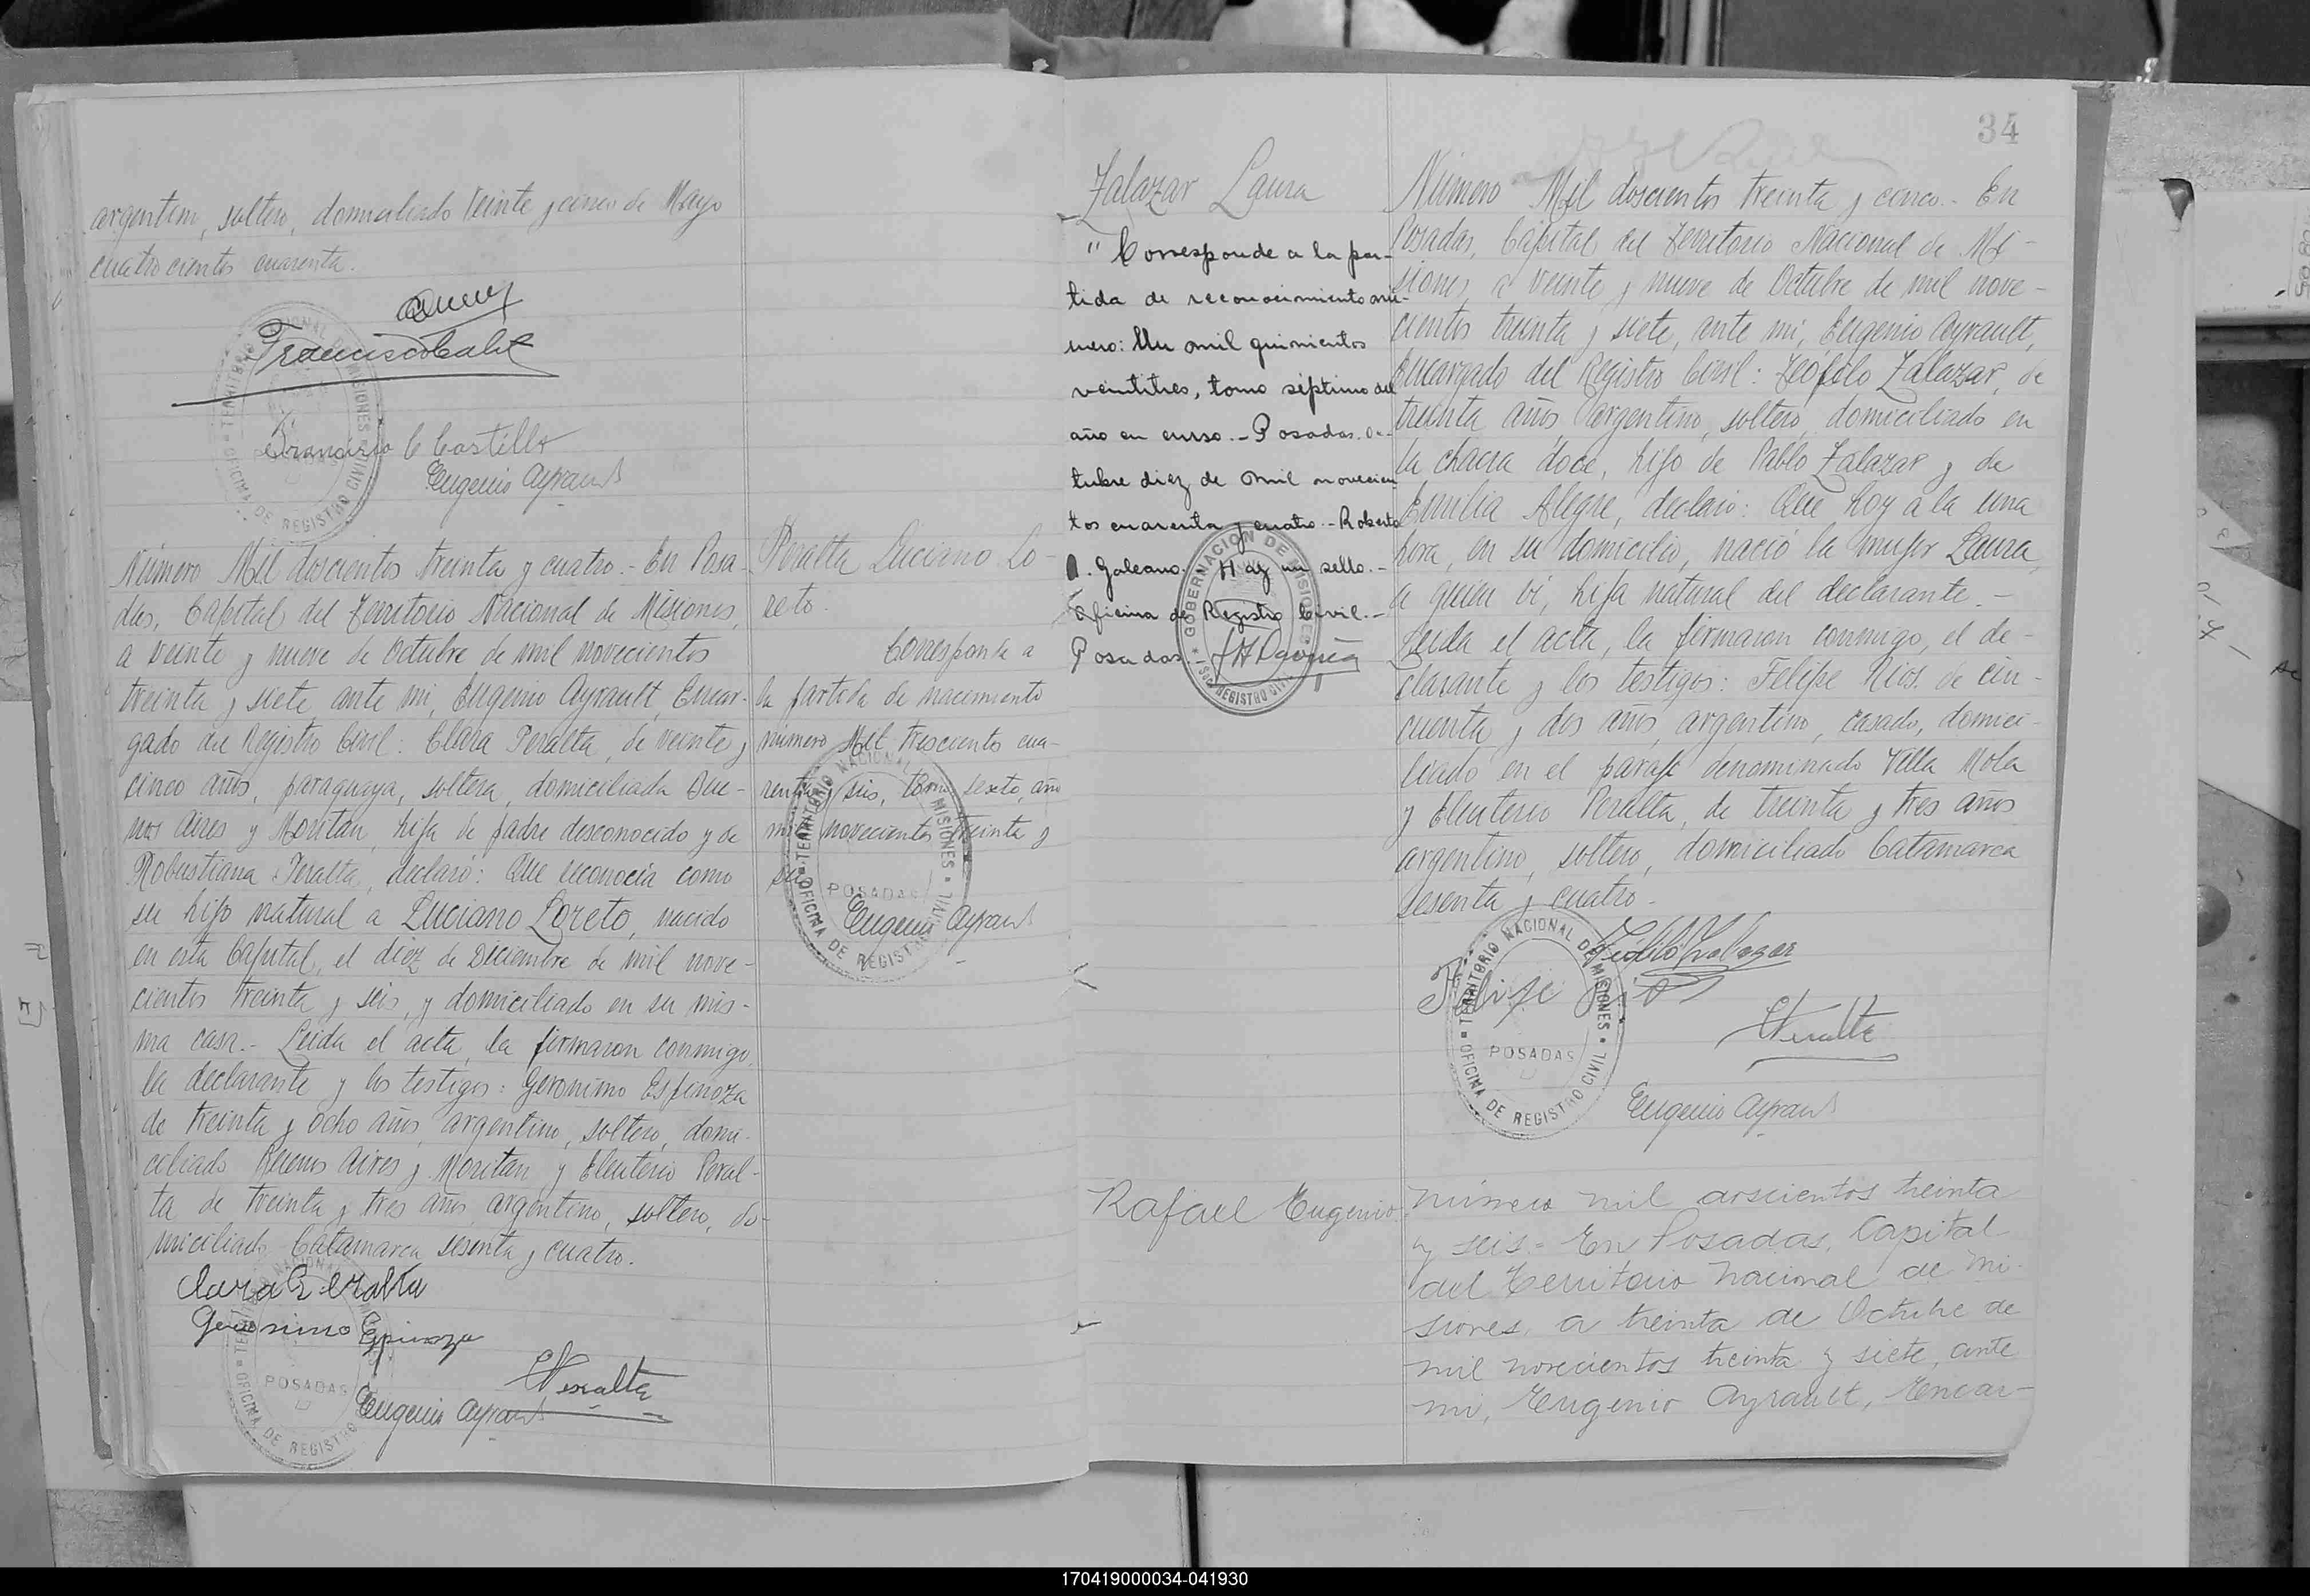 argentino, soltero, domiciliado Veinte y cinco de Mayo
cuatrocientos cuarenta.
Francisco C Castillo
Eugenio Ayrault
Peralta Luciano Lo-
reto.
Corresponde a
la partida de nacimiento
número Mil trescientos cua-
renta y seis, tomo sexto, año
mil novecientos treinta y
seis
Eugenio Ayrault
TERRITORIO NACIONAL DE MISIONES
OFICINA DE REGISTRO CIVIL
POSADAS
Número Mil doscientos treinta y cuatro.- En Posa-
das, Capital del Territorio Nacional de Misiones,
a veinte y nueve de Octubre de mil novecientos
treinta y siete ante mi, Eugenio Ayrault, Encar-
gado del Registro Civil: Clara Peralta, de veinte y
cinco años, paraguaya, soltera, domiciliada Bue-
nos Aires y Moritan, hija de padre desconocido y de
Robustiana Peralta, declaró: Que reconocía como
su hijo natural a Luciano Loreto, nacido
en esta Capital, el diez de Diciembre de mil nove-
cientos treinta y seis, y domiciliado en su mis-
ma casa.- Leida el acta, la firmaron conmigo,
la declarante y los testigos: Geronimo Espinoza
de treinta y ocho años, argentino, soltero, domi-
ciliado Buenos Aires y Moritan y Eleuterio Peral-
ta de treinta y tres años, argentino, soltero, do-
miciliado Catamarca sesenta y cuatro.
Clara Peralta
Geronimo Espinoza
EPeralta
Eugenio Ayrault
34
Zalazar Laura
"Corresponde a la par-
tida de reconocimiento nú-
mero: Un mil quinientos
veintitres, tomo séptimo del
año en curso.- Posadas, Oc-
tubre diez de mil novecien
tos cuarenta y cuatro.- Roberto
A. Galeano. Hay un sello.-
Oficina de Registro Civil.-
Posadas.
GOBERNACION DE MISIONES
REGISTRO CIVIL
Número Mil doscientos treinta y cinco.- En
Posadas, Capital del Territorio Nacional de Mi-
siones, a veinte y nueve de Octubre de mil nove-
cientos treinta y siete, ante mi, Eugenio Ayrault,
Encargado del Registro Civil: Teófilo Zalazar, de
treinta años, argentino, soltero, domiciliado en
la chacra doce, hijo de Pablo Zalazar y de
Emilia Alegre, declaró: Que hoy a la una
hora, en su domicilio, nació la mujer Laura,
a quien vi, hija natural del declarante.-
Leida el acta, la firmaron conmigo, el de-
clarante y los testigos: Felipe Rios, de cin-
cuenta y dos años, argentino, casado, domici-
liado en el paraje denominado Villa Mola
y Eleuterio Peralta, de treinta y tres años
argentino, soltero, domiciliado Catamarca
sesenta y cuatro.
Teofilo Zalazar
Felipe Rios
EPeralta
Eugenio Ayrault
TERRITORIO NACIONAL DE MISIONES
OFICINA DE REGISTRO CIVIL
POSADAS
Rafael Eugenio
Número mil doscientos treinta
y seis.- En Posadas, Capital
del Territorio Nacional de Mi-
siones, a treinta de Octubre de
mil novecientos treinta y siete, ante
mi, Eugenio Ayrault, Encar-
170419000034-041930